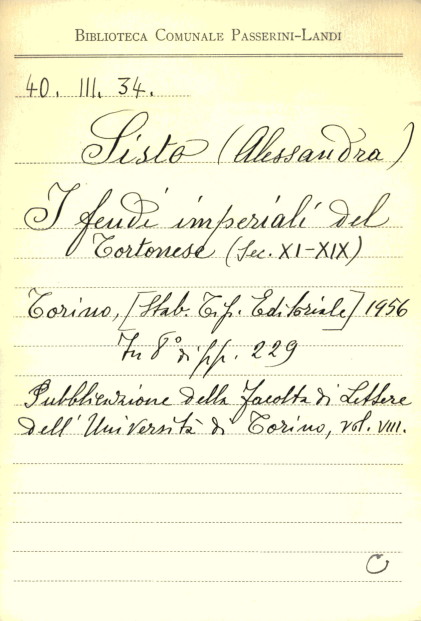 Biblioteca Comunale Passerini-Landi
40. III. 34.
Sisto (Alessandra)
I feudi imperiali del
Tortonese (Sec. XI-XIX)
Torino, [Stab. Tip. Editoriale] 1956
In 8° di pp. 229
Pubblicazione della Facoltà di Lettere
dell'Università di Torino, vol. VIII.
C